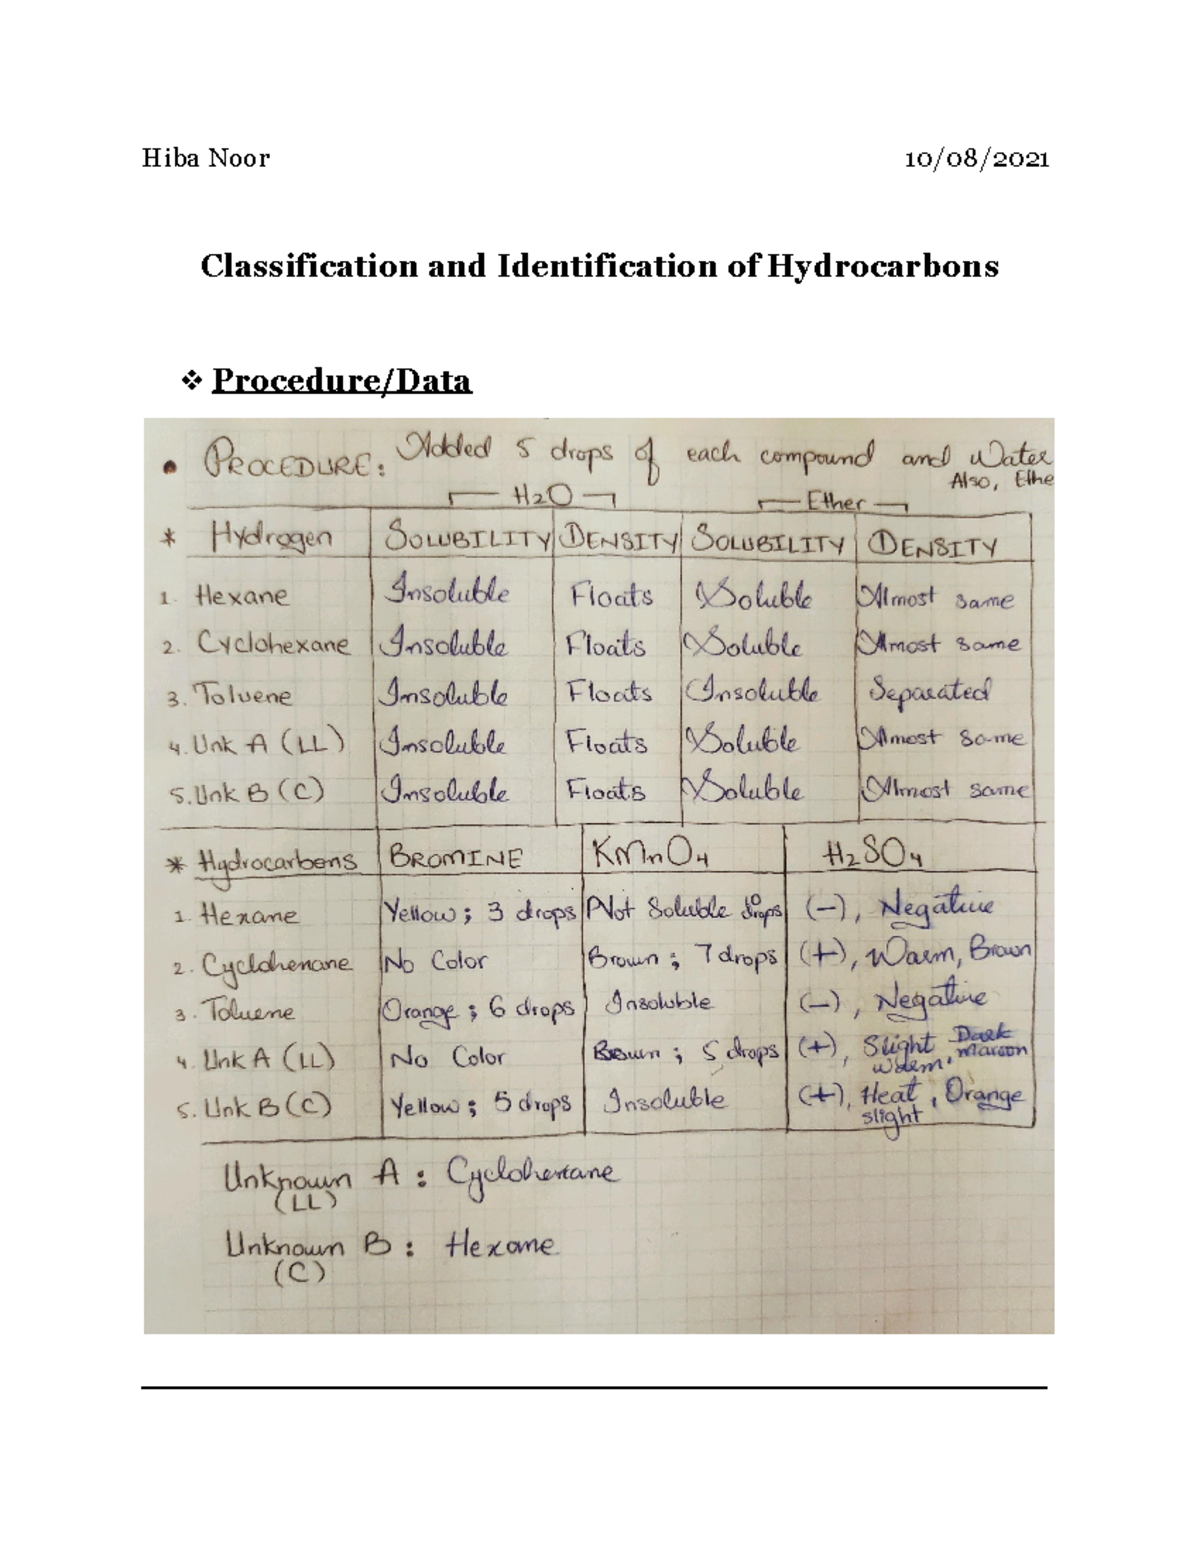 Hiba Noor 10/08/2021
Classification and Identification of Hydrocarbons
❖ Procedure/Data
• PROCEDURE: Added 5 drops of each compound and Water
Also, Ethe
H2O Ether
* Hydrogen SOLUBILITY DENSITY SOLUBILITY DENSITY
1. Hexane Insoluble Floats Soluble Almost same
2. Cyclohexane Insoluble Floats Soluble Almost same
3. Toluene Insoluble Floats Insoluble Separated
4. Unk A (LL) Insoluble Floats Soluble Almost same
5. Unk B (C) Insoluble Floats Soluble Almost same
* Hydrocarbons BROMINE KMnO4 H2SO4
1. Hexane Yellow; 3 drops Not Soluble drops (-), Negative
2. Cyclohexane No Color Brown; 7 drops (+), Warm, Brown
3. Toluene Orange; 6 drops Insoluble (-), Negative
4. Unk A (LL) No Color Brown; 5 drops (+), Slight warm, Dark maroon
5. Unk B (C) Yellow; 5 drops Insoluble (+), Heat slight, Orange
Unknown A: Cyclohexane
(LL)
Unknown B: Hexane
(C)